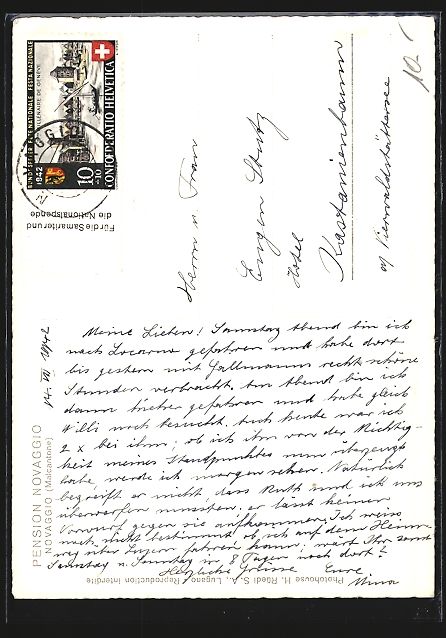 BUNDESFEIER FÊTE NATIONALE FESTA NAZIONALE
BIMILLENAIRE DE GENÈVE
1942
10
+10
CONFOEDERATIO HELVETICA
Für die Samariter und
die Nationalspende
10
Herrn u. Frau
Eugen Stutz
Hotel
Kastanienbaum
a/ Vierwaldstättersee
PENSION NOVAGGIO
NOVAGGIO (Malcantone)
14. VII 1942
Meine Lieben! Samstag Abend bin ich
nach Locarno gefahren und habe dort
bis gestern mit recht schöne
Stunden verbracht. Am Abend bin ich
dann hieher gefahren und habe gleich
Willi noch besucht. Auch heute war ich
2 x bei ihm; ob ich ihn von der Richtig-
keit meines Standpunktes nun überzeugt
habe, werde ich morgen sehen. Natürlich
begreift er nicht, dass Ruth und ich uns
überwerfen mussten, er lässt keinen
Vorwurf gegen sie aufkommen. Ich weiss
noch nicht bestimmt ob ich auf dem Heim-
weg über Luzern fahren kann; wärt Ihr sonst
Samstag u. Sonntag in 8 Tagen noch dort?
Herzliche Grüsse Eure
Mina
Photohouse H. Rüedi S. A., Lugano Reproduction interdite